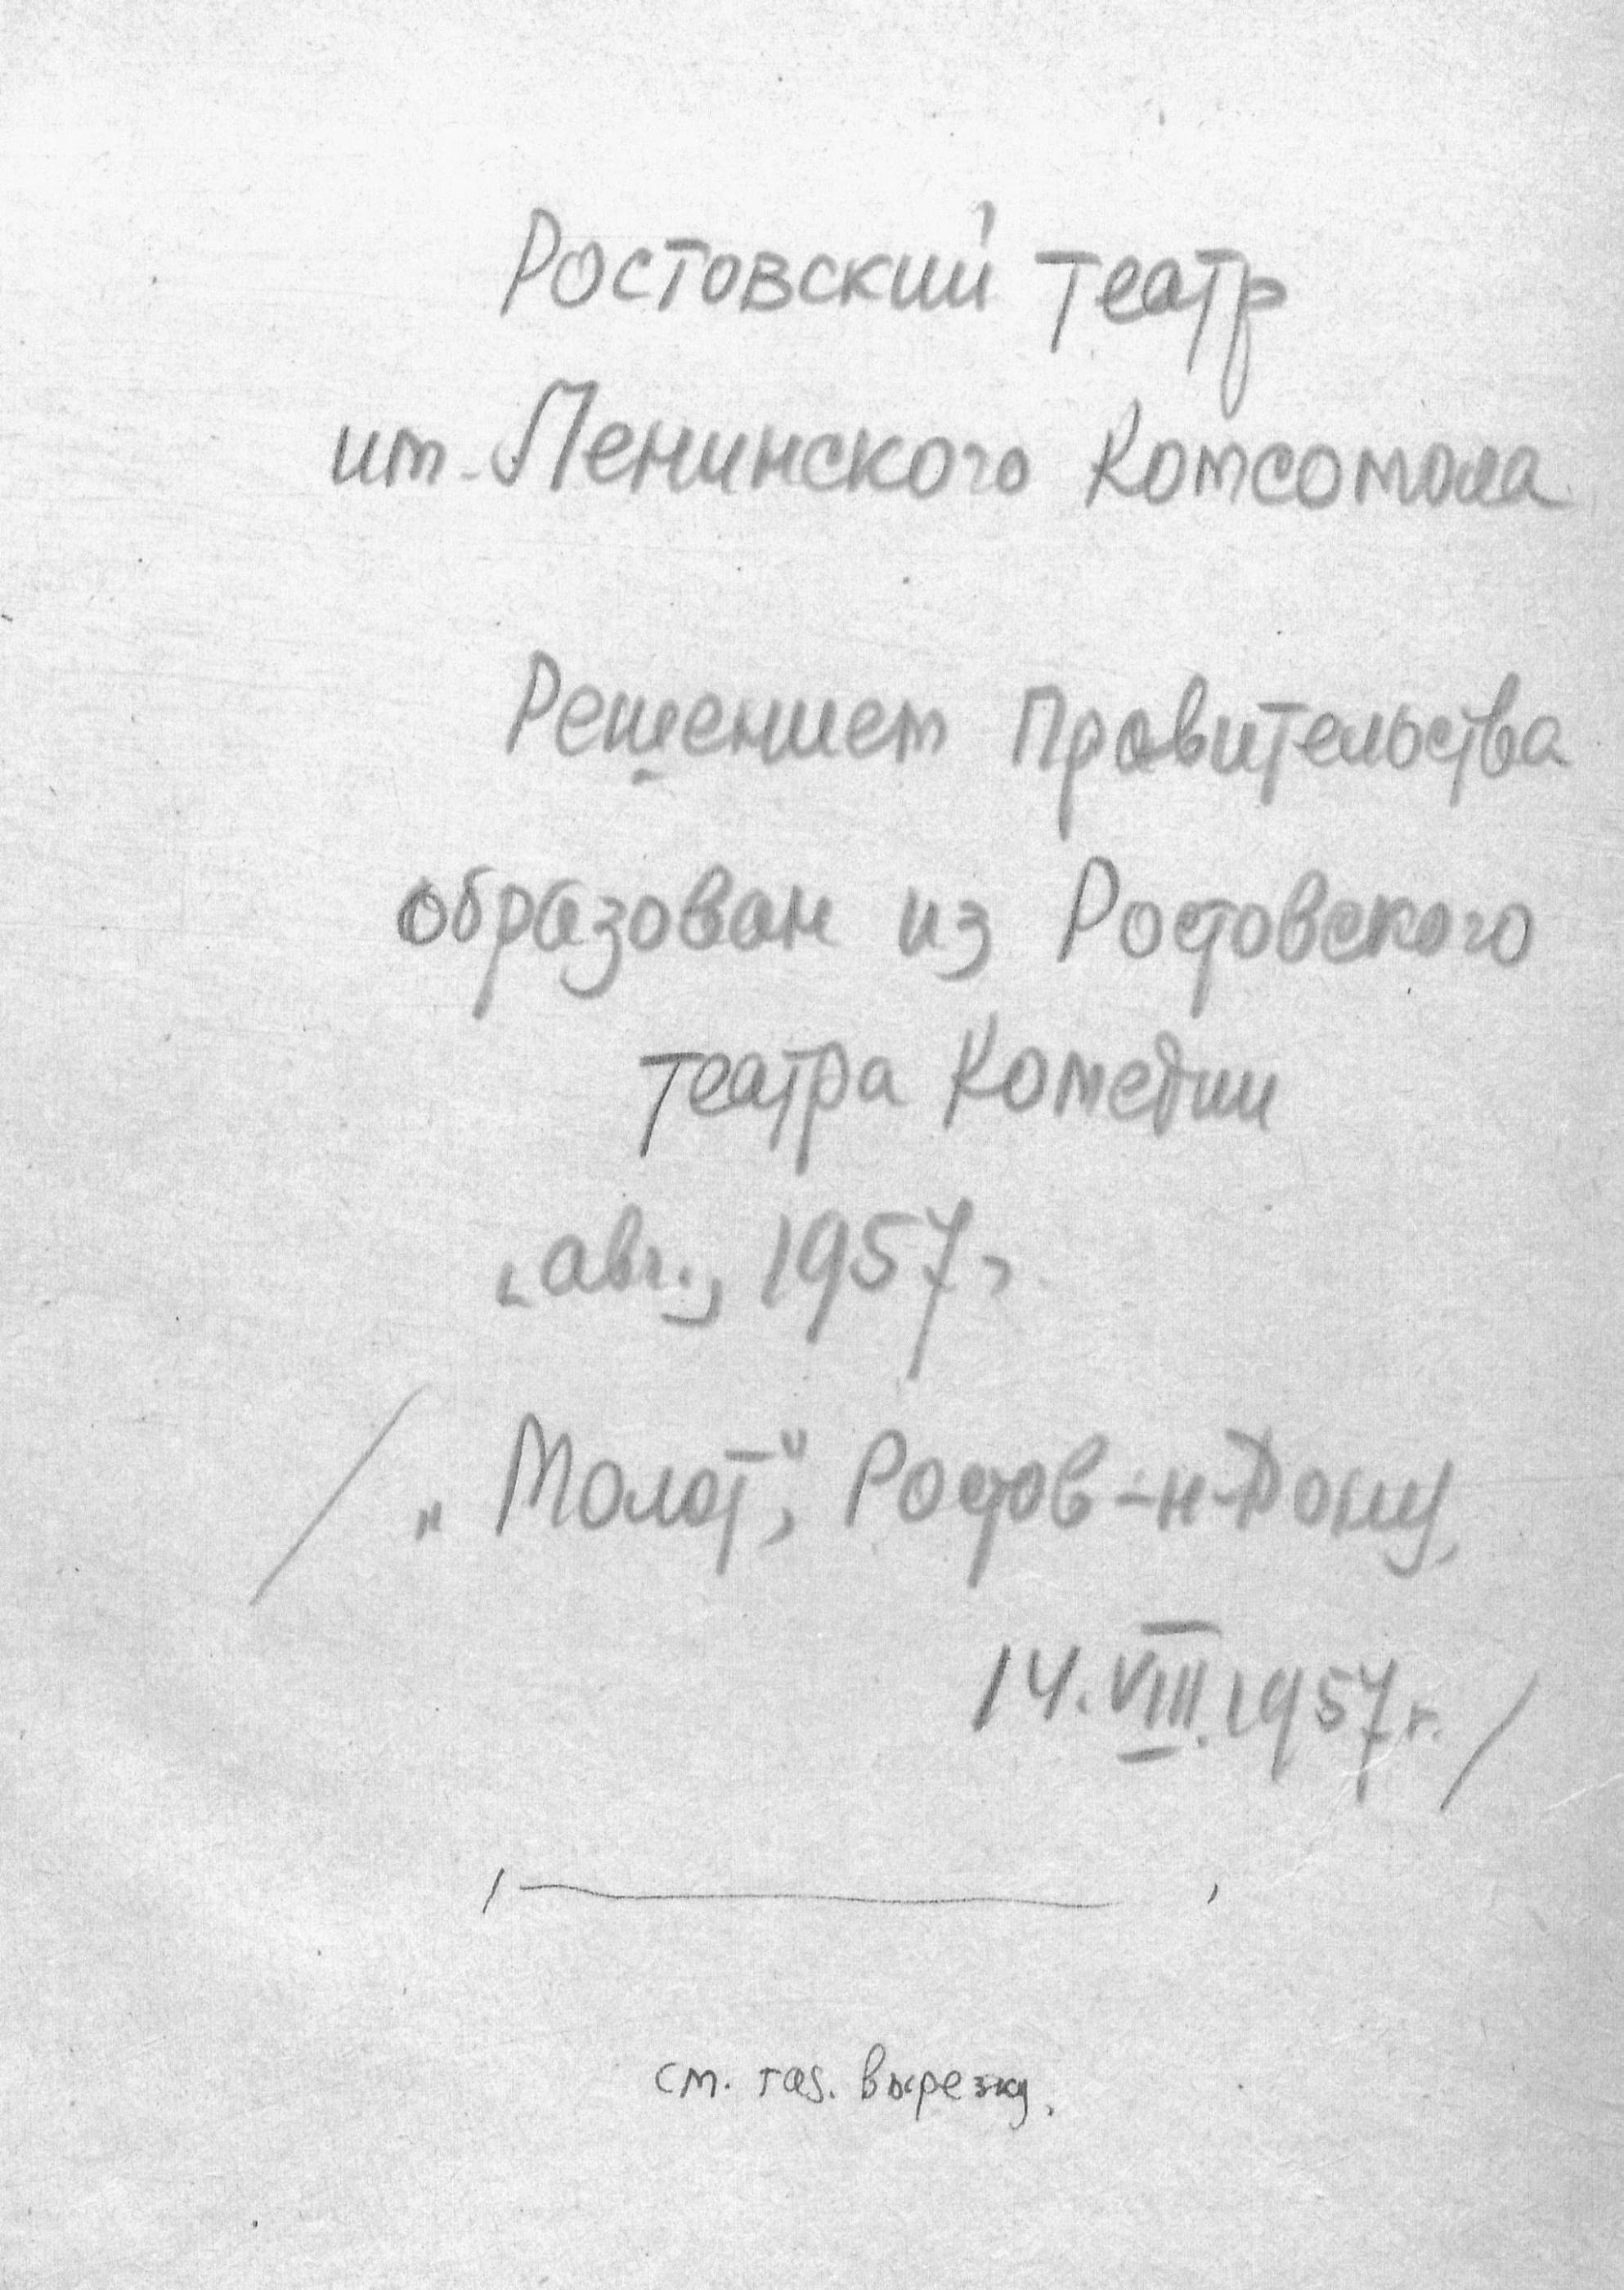 Ростовский театр
им. Ленинского Комсомола
Решением Правительства
образован из Ростовского
театра Комедии
„авг.„ 1957г
/ „Молот", Ростов-н-Дону,
14.VIII.1957г. /
см. газ. вырезку.